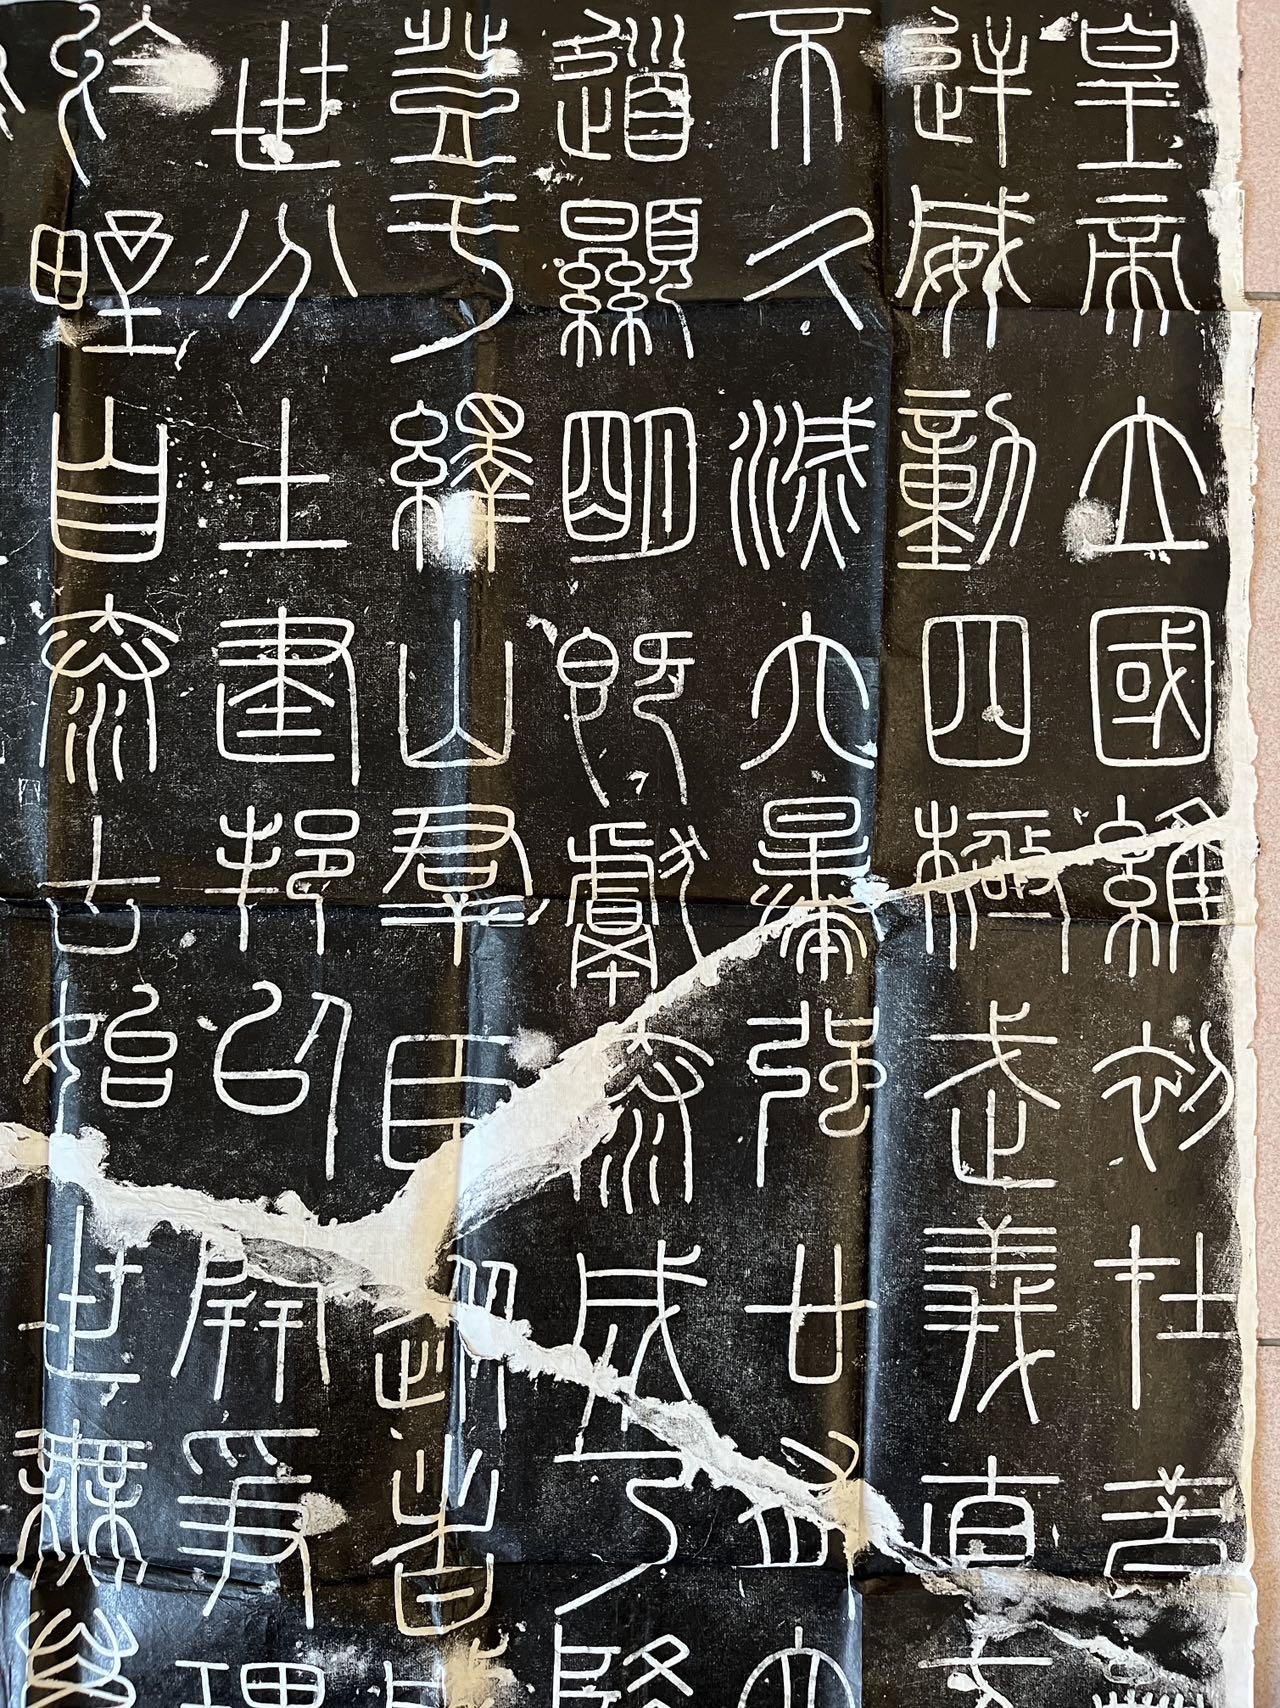 皇帝立國維初在昔
逆威動四極武義直方
不久滅六暴強廿有六
道顯明既獻泰成乃降
登于繹山羣臣從者
世分土建邦以開爭理
於野自泰古始世無萬